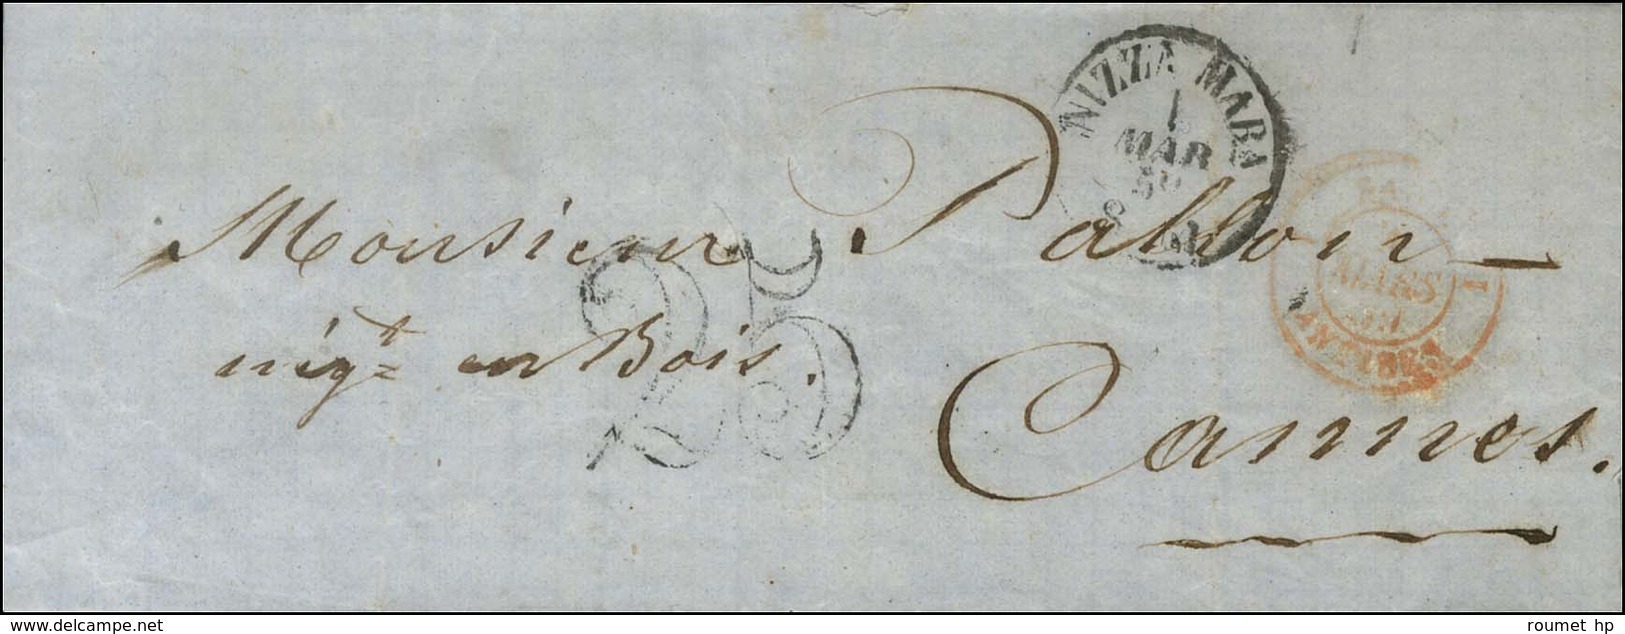 NIZZA MARA
1
MAR
Monsieur Pahoin
MARS
négt en Bois.
ANTIBES
25
Cannes.
www.delcampe.net
roumet hp